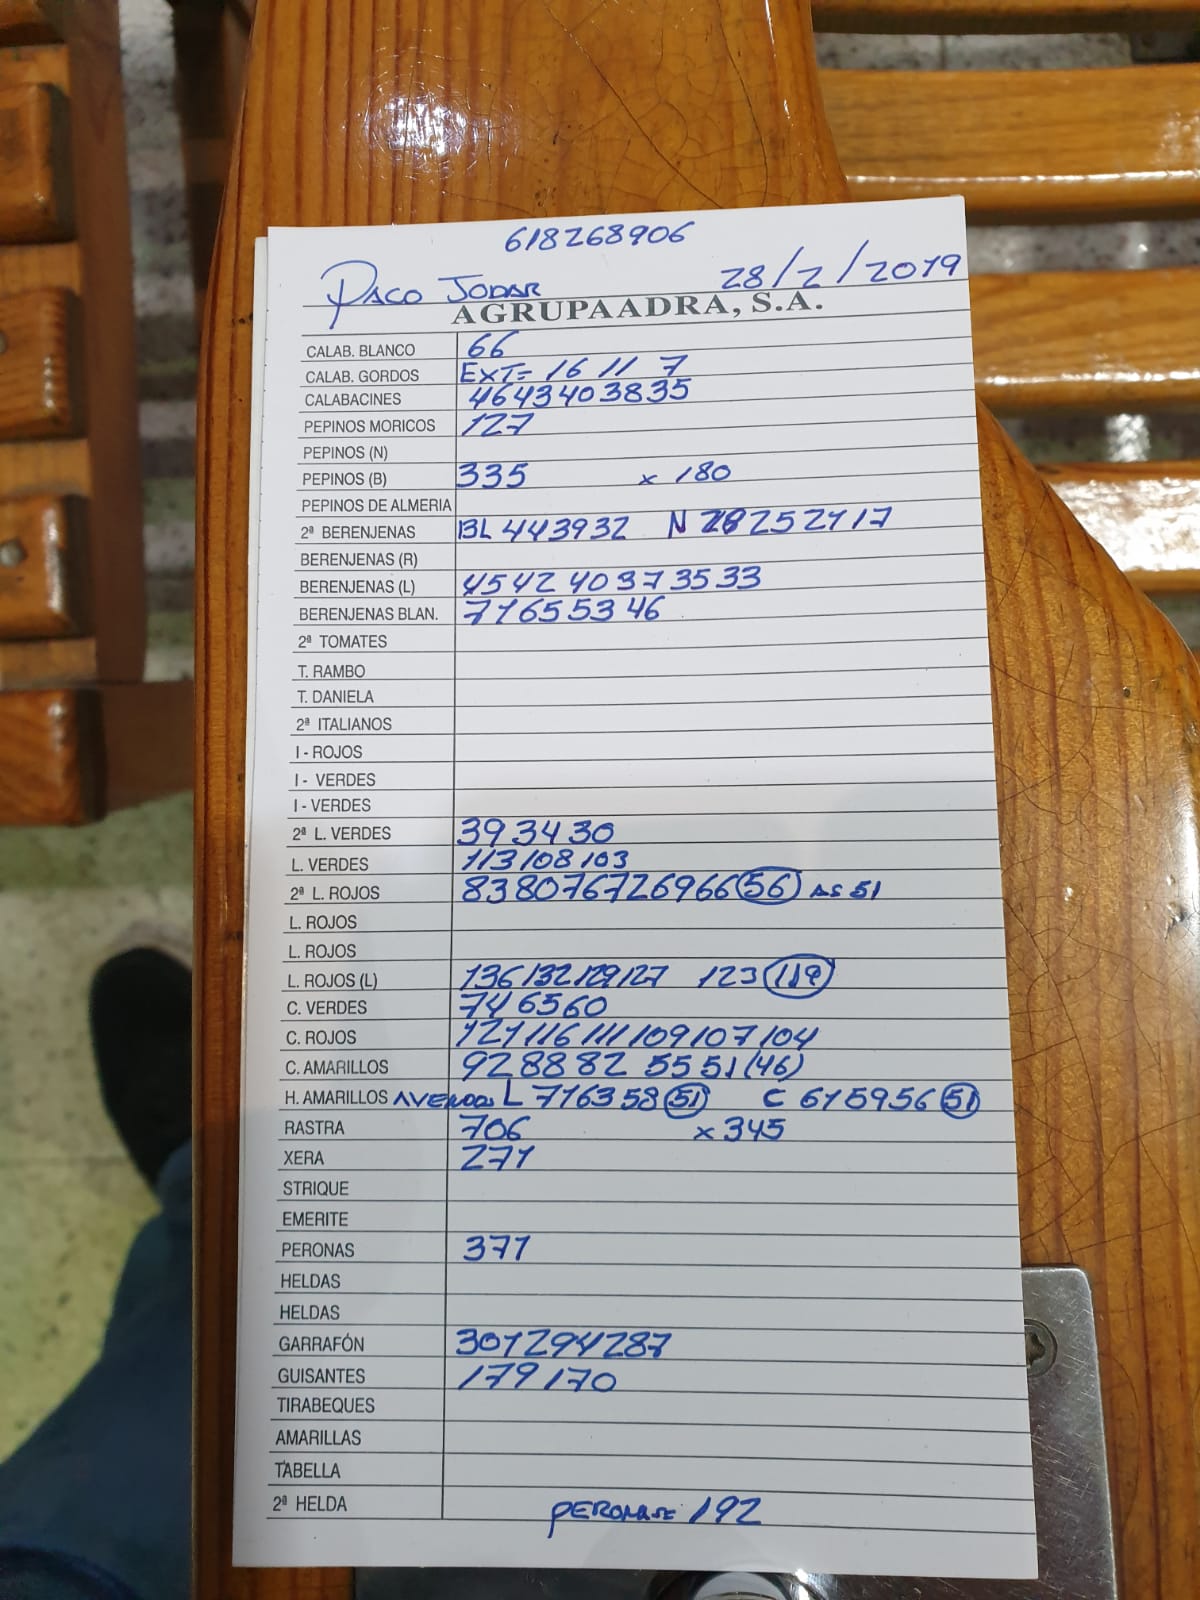 618268906
PACO JODAR 28/2/2019
AGRUPAADRA, S.A.
CALAB. BLANCO 66
CALAB. GORDOS EXT= 16 11 7
CALABACINES 4643403835
PEPINOS MORICOS 127
PEPINOS (N)
PEPINOS (B) 335 x 180
PEPINOS DE ALMERIA
2ª BERENJENAS BL 443932 N 28252117
BERENJENAS (R)
BERENJENAS (L) 4542 40373533
BERENJENAS BLAN. 71655346
2ª TOMATES
T. RAMBO
T. DANIELA
2ª ITALIANOS
I - ROJOS
I - VERDES
I - VERDES
2ª L. VERDES 393430
L. VERDES 113108103
2ª L. ROJOS 838076726966 56 AS 51
L. ROJOS
L. ROJOS
L. ROJOS (L) 136132129127 123 119
C. VERDES 746560
C. ROJOS 121116111109107104
C. AMARILLOS 928882 5551 (46)
H. AMARILLOS L 716358 51 C 615956 51
RASTRA 706 x 345
XERA 271
STRIQUE
EMERITE
PERONAS 371
HELDAS
HELDAS
GARRAFÓN 301294287
GUISANTES 179170
TIRABEQUES
AMARILLAS
TABELLA
2ª HELDA 192